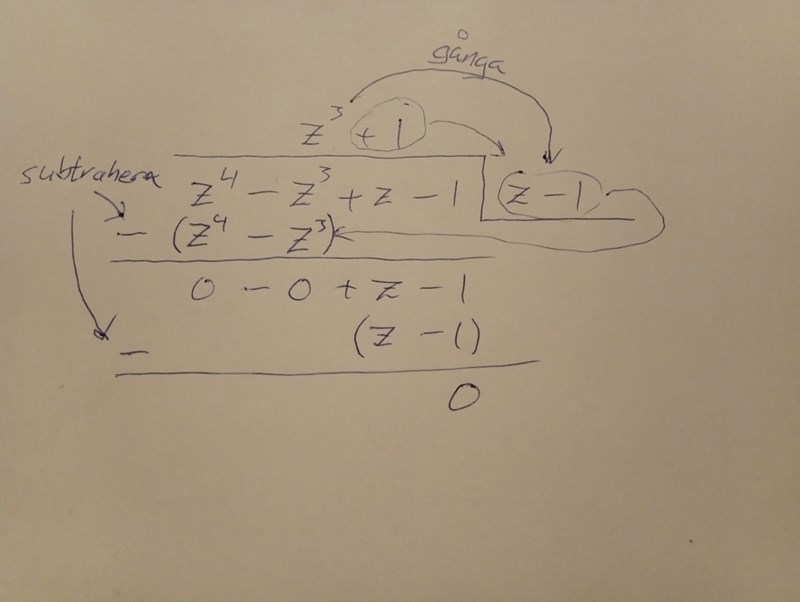 gånga
z³ + 1
subtrahera
z⁴ - z³ + z - 1 z - 1
- (z⁴ - z³)
0 - 0 + z - 1
- (z - 1)
0